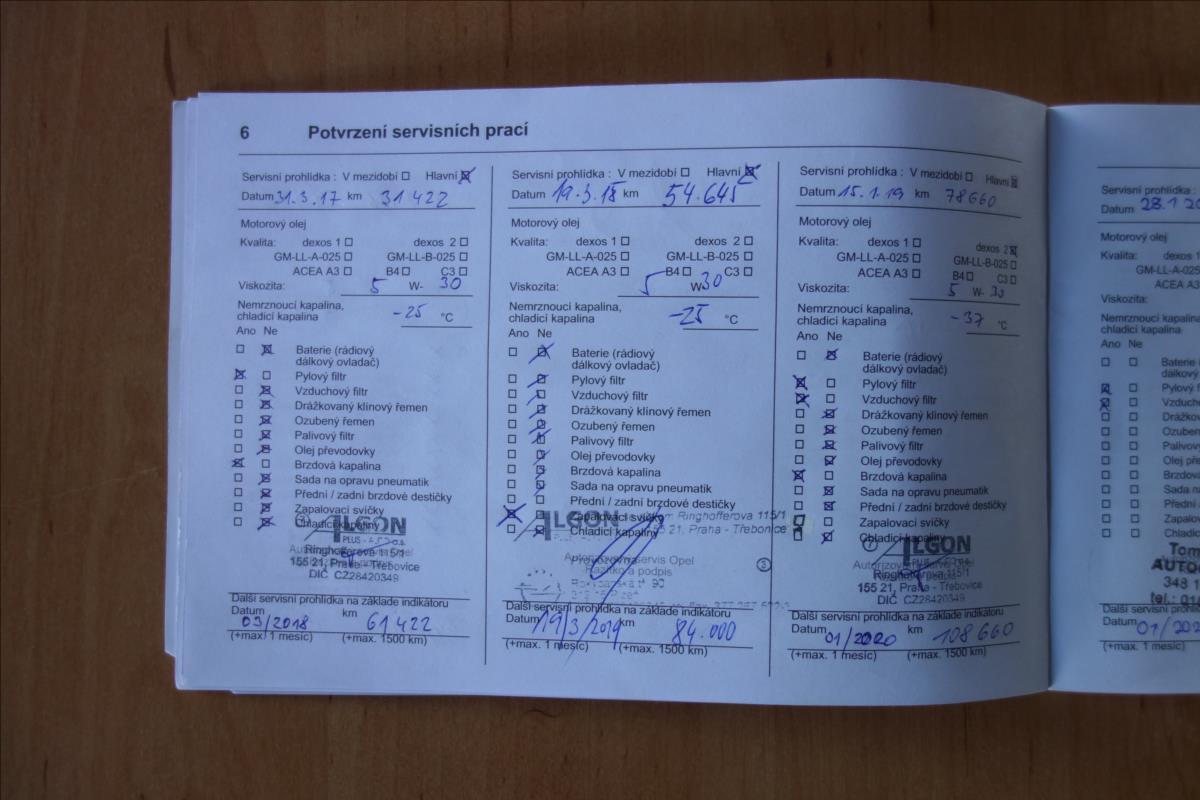 6 Potvrzení servisních prací
Servisní prohlídka : V mezidobí ☐ Hlavní ☒
Datum 31.3.17 km 31 422
Motorový olej
Kvalita: dexos 1 ☐ dexos 2 ☐
GM-LL-A-025 ☐ GM-LL-B-025 ☐
ACEA A3 ☐ B4 ☐ C3 ☐
Viskozita: 5 W- 30
Nemrznoucí kapalina,
chladicí kapalina -25 °C
Ano Ne
☐ ☒ Baterie (rádiový
dálkový ovladač)
☒ ☐ Pylový filtr
☐ ☒ Vzduchový filtr
☐ ☒ Drážkovaný klínový řemen
☐ ☒ Ozubený řemen
☐ ☒ Palivový filtr
☐ ☒ Olej převodovky
☒ ☐ Brzdová kapalina
☐ ☒ Sada na opravu pneumatik
☐ ☒ Přední / zadní brzdové destičky
☐ ☒ Zapalovací svíčky
☐ ☒ Chladicí kapaliny
ALGON
PLUS
Ringhofferova 115/1
155 21, Praha - Třebovice
DIČ CZ28420349
Další servisní prohlídka na základe indikátoru
Datum 03/2018 km 61 422
(+max. 1 měsíc) (+max. 1500 km)
Servisní prohlídka : V mezidobí ☐ Hlavní ☒
Datum 19.3.18 km 54.645
Motorový olej
Kvalita: dexos 1 ☐ dexos 2 ☐
GM-LL-A-025 ☐ GM-LL-B-025 ☐
ACEA A3 ☐ B4 ☐ C3 ☐
Viskozita: 5 W 30
Nemrznoucí kapalina,
chladicí kapalina -25 °C
Ano Ne
☐ ☒ Baterie (rádiový
dálkový ovladač)
☐ ☒ Pylový filtr
☐ ☒ Vzduchový filtr
☐ ☒ Drážkovaný klínový řemen
☐ ☒ Ozubený řemen
☐ ☒ Palivový filtr
☐ ☒ Olej převodovky
☐ ☒ Brzdová kapalina
☐ ☒ Sada na opravu pneumatik
☐ ☒ Přední / zadní brzdové destičky
☒ ☐ Zapalovací svíčky
☐ ☒ Chladicí kapaliny
ALGON Ringhofferova 115/1
155 21, Praha - Třebonice
Autorizovaný servis Opel
Razítko a podpis
Další servisní prohlídka na základe indikátoru
Datum 19/3/2019 km 84.000
(+max. 1 měsíc) (+max. 1500 km)
Servisní prohlídka : V mezidobí ☐ Hlavní ☒
Datum 15.1.19 km 78660
Motorový olej
Kvalita: dexos 1 ☐ dexos 2 ☒
GM-LL-A-025 ☐ GM-LL-B-025 ☐
ACEA A3 ☐ B4 ☐ C3 ☐
Viskozita: 5 W- 30
Nemrznoucí kapalina,
chladicí kapalina -37 °C
Ano Ne
☐ ☒ Baterie (rádiový
dálkový ovladač)
☒ ☐ Pylový filtr
☒ ☐ Vzduchový filtr
☐ ☒ Drážkovaný klínový řemen
☐ ☒ Ozubený řemen
☐ ☒ Palivový filtr
☐ ☒ Olej převodovky
☒ ☐ Brzdová kapalina
☐ ☒ Sada na opravu pneumatik
☐ ☒ Přední / zadní brzdové destičky
☐ ☐ Zapalovací svíčky
☐ ☒ Chladicí kapaliny
ALGON
Ringhofferova 115/1
155 21, Praha - Třebovice
DIČ CZ28420349
Další servisní prohlídka na základe indikátoru
Datum 01/2020 km 108 660
(+max. 1 měsíc) (+max. 1500 km)
Servisní prohlídka :
Datum 28.1 20
Motorový olej
Kvalita: dexos 1
GM-LL-A-025
ACEA A3
Viskozita:
Nemrznoucí kapalina,
chladicí kapalina
Ano Ne
☐ ☐ Baterie
dálkový
☒ ☐ Pylový
☒ ☐ Vzduch
☐ ☐ Drážko
☐ ☐ Ozubený
☐ ☐ Palivový
☐ ☐ Olej př
☐ ☐ Brzdová
☐ ☐ Sada na
☐ ☐ Přední
☐ ☐ Zapalo
☐ ☐ Chladic
Tom
AUTO
348 1
tel.:
Další servisní prohl
Datum 01/202
(+max. 1 měsíc)